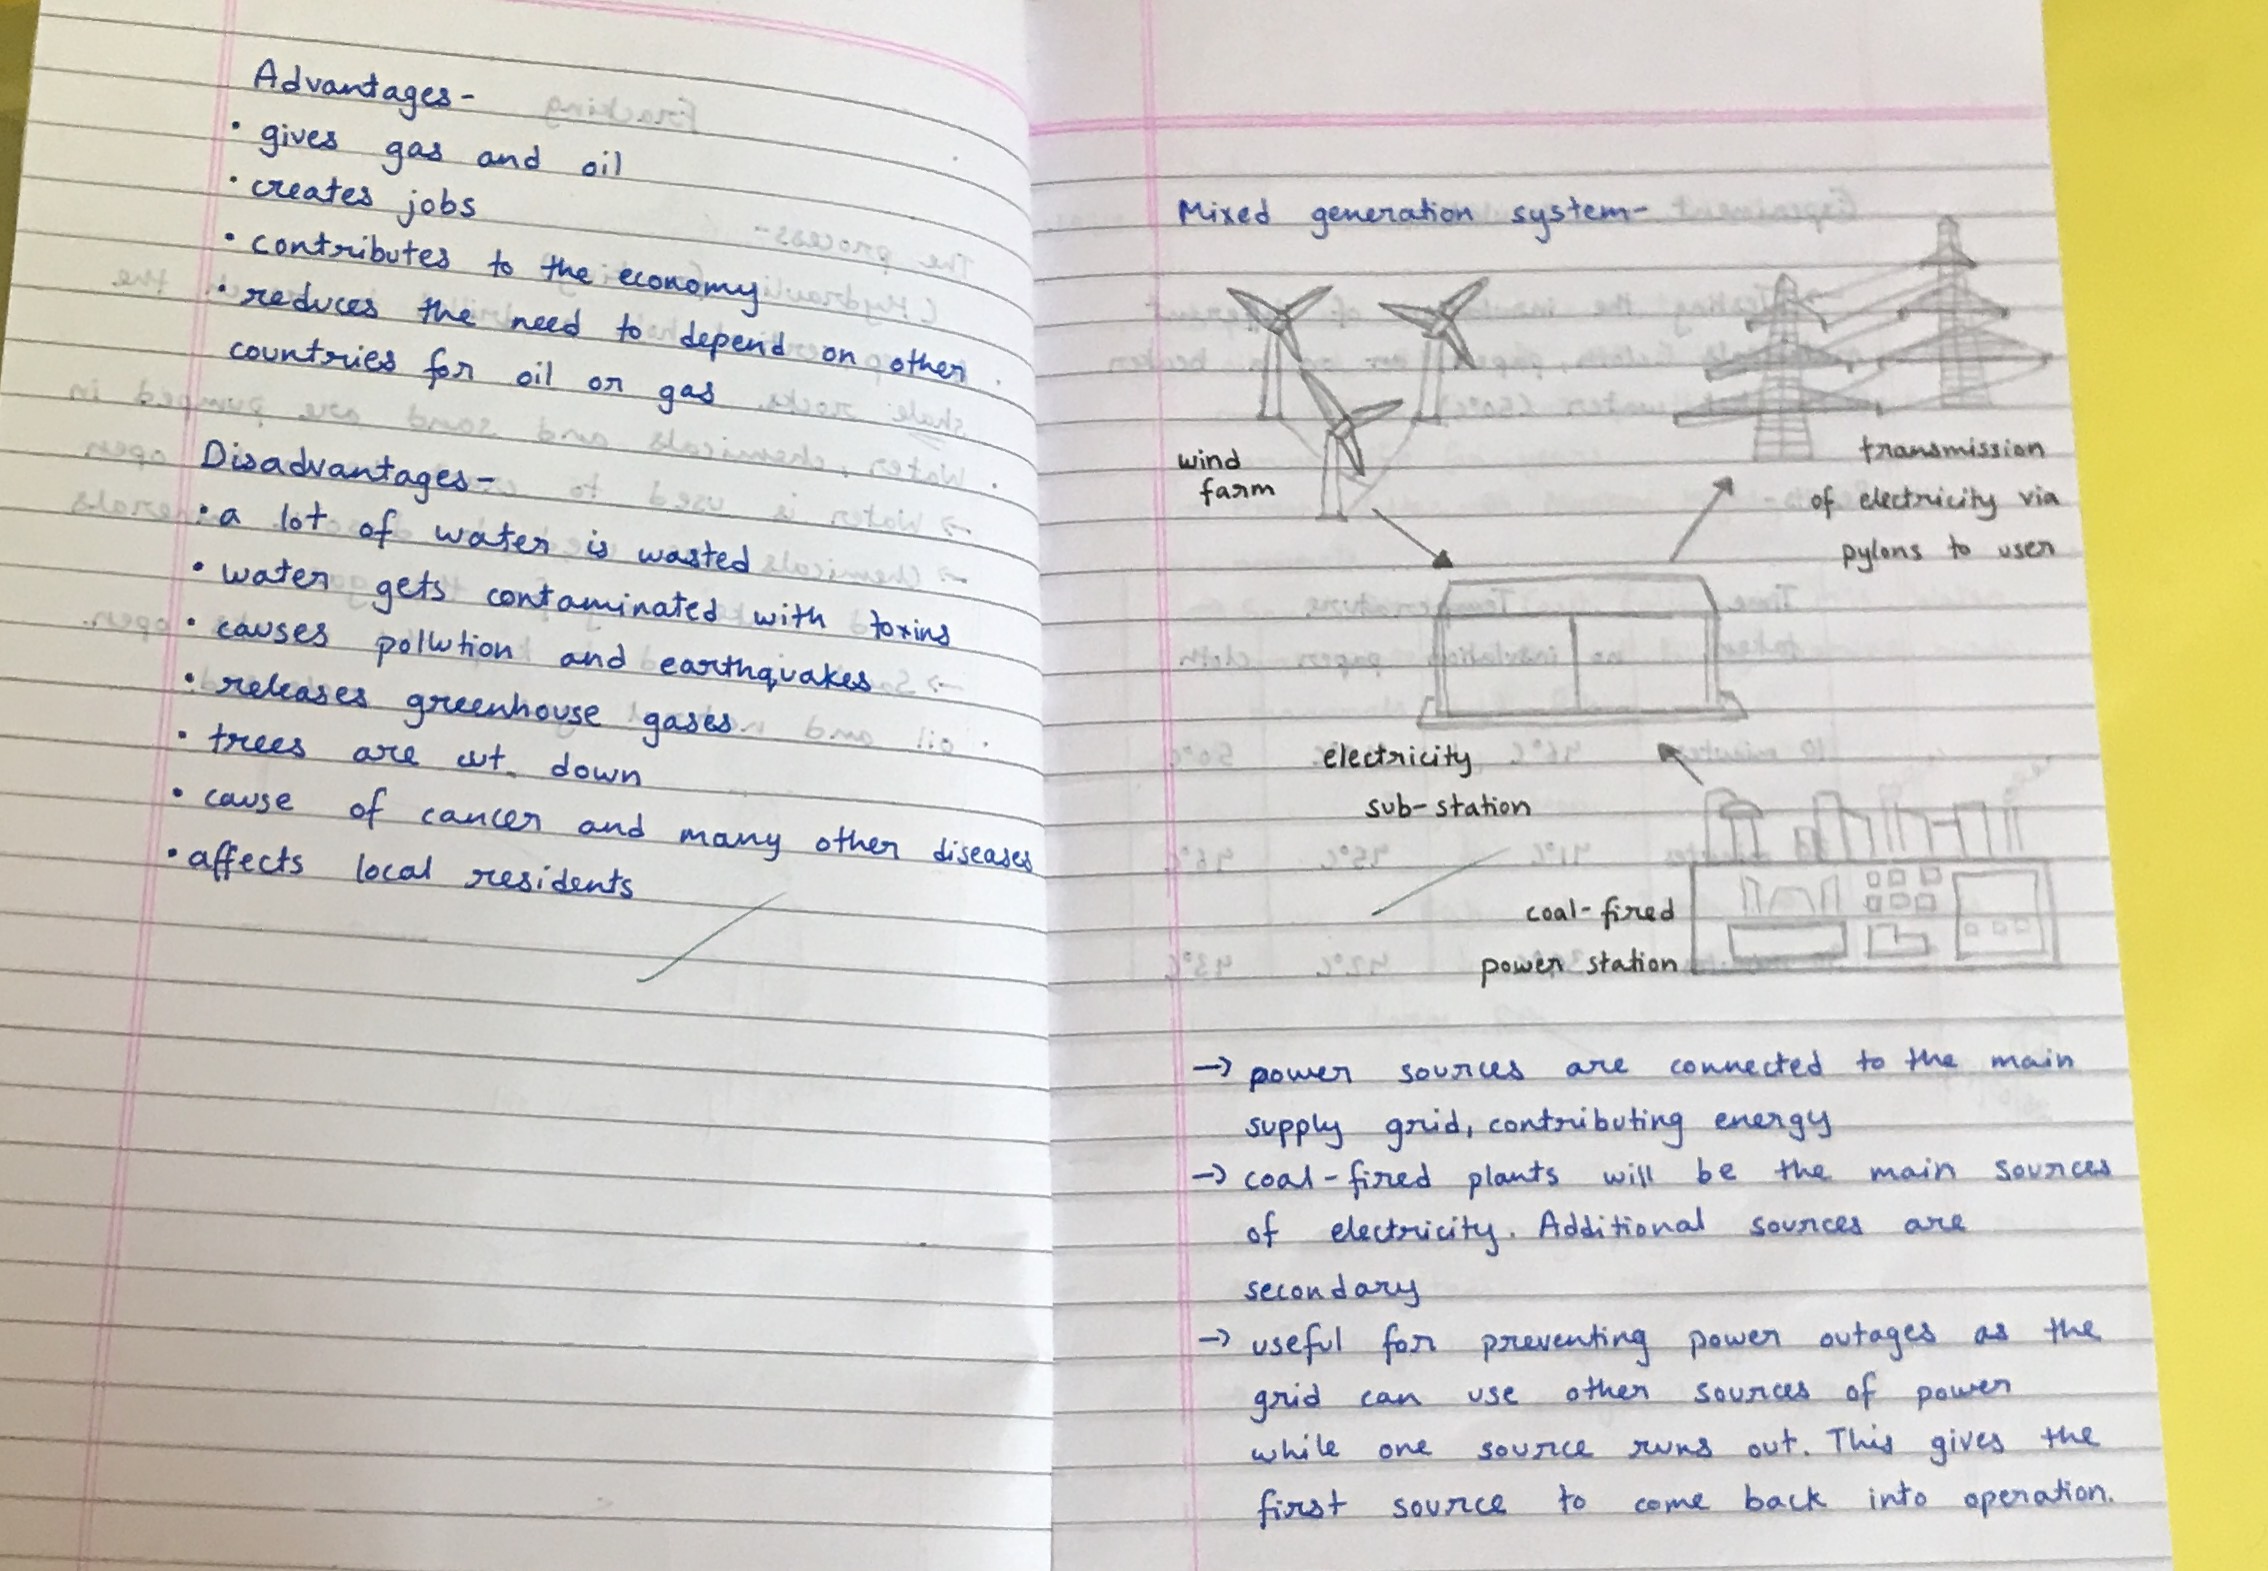 Advantages-
• gives gas and oil
• creates jobs
• contributes to the economy
• reduces the need to depend on other
countries for oil or gas
Disadvantages-
• a lot of water is wasted
• water gets contaminated with toxins
• causes pollution and earthquakes
• releases greenhouse gases
• trees are cut down
• cause of cancer and many other diseases
• affects local residents
Mixed generation system-
wind
farm
transmission
of electricity via
pylons to user
electricity
sub-station
coal-fired
power station
→ power sources are connected to the main
supply grid, contributing energy
→ coal-fired plants will be the main sources
of electricity. Additional sources are
secondary
→ useful for preventing power outages as the
grid can use other sources of power
while one source runs out. This gives the
first source to come back into operation.